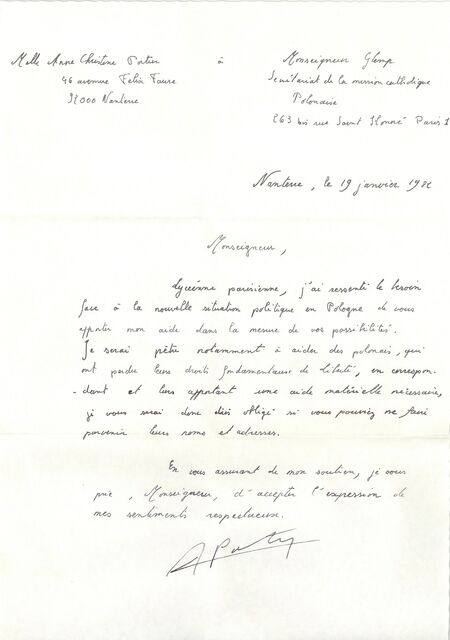 Melle Anne Christine Portier à Monseigneur Glemp
46 avenue Felix Faure Secrétariat de la mission catholique
92000 Nanterre Polonaise
263 bis rue Saint Honoré Paris 1
Nanterre, le 19 janvier 1982
Monseigneur,
Lycéenne parisienne, j'ai ressenti le besoin
face à la nouvelle situation politique en Pologne de vous
apporter mon aide dans la mesure de vos possibilités.
Je serai prête notamment à aider des polonais, qui
ont perdu leurs droits fondamentaux de liberté, en correspon-
-dant et leurs apportant une aide matérielle nécessaire,
je vous serai donc très obligé si vous pouviez me faire
parvenir leurs noms et adresses.
En vous assurant de mon soutien, je vous
prie, Monseigneur, d'accepter l'expression de
mes sentiments respectueux.